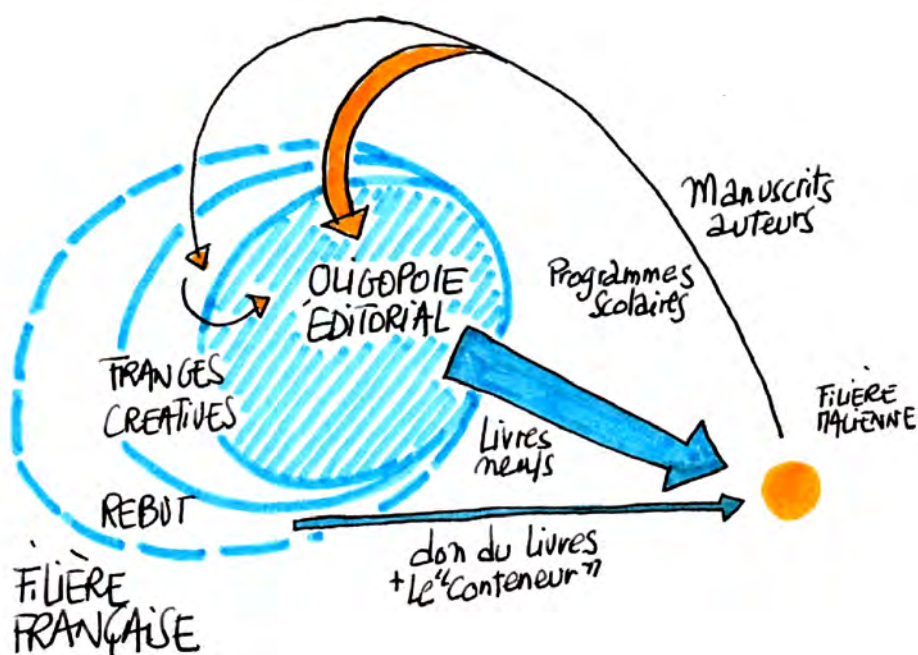 Manuscrits
auteurs
Programmes
scolaires
OLIGOPOLE
ÉDITORIAL
FRANGES
CREATIVES
FILIÈRE
MALIENNE
Livres
neufs
REBUT
don du Livres
+ Le "Conteneur"
FILIÈRE
FRANÇAISE